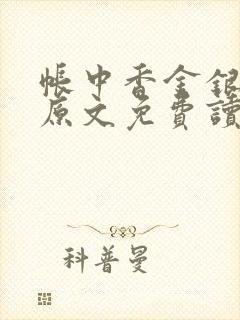 帳中香金銀
原文免費讀
科普曼